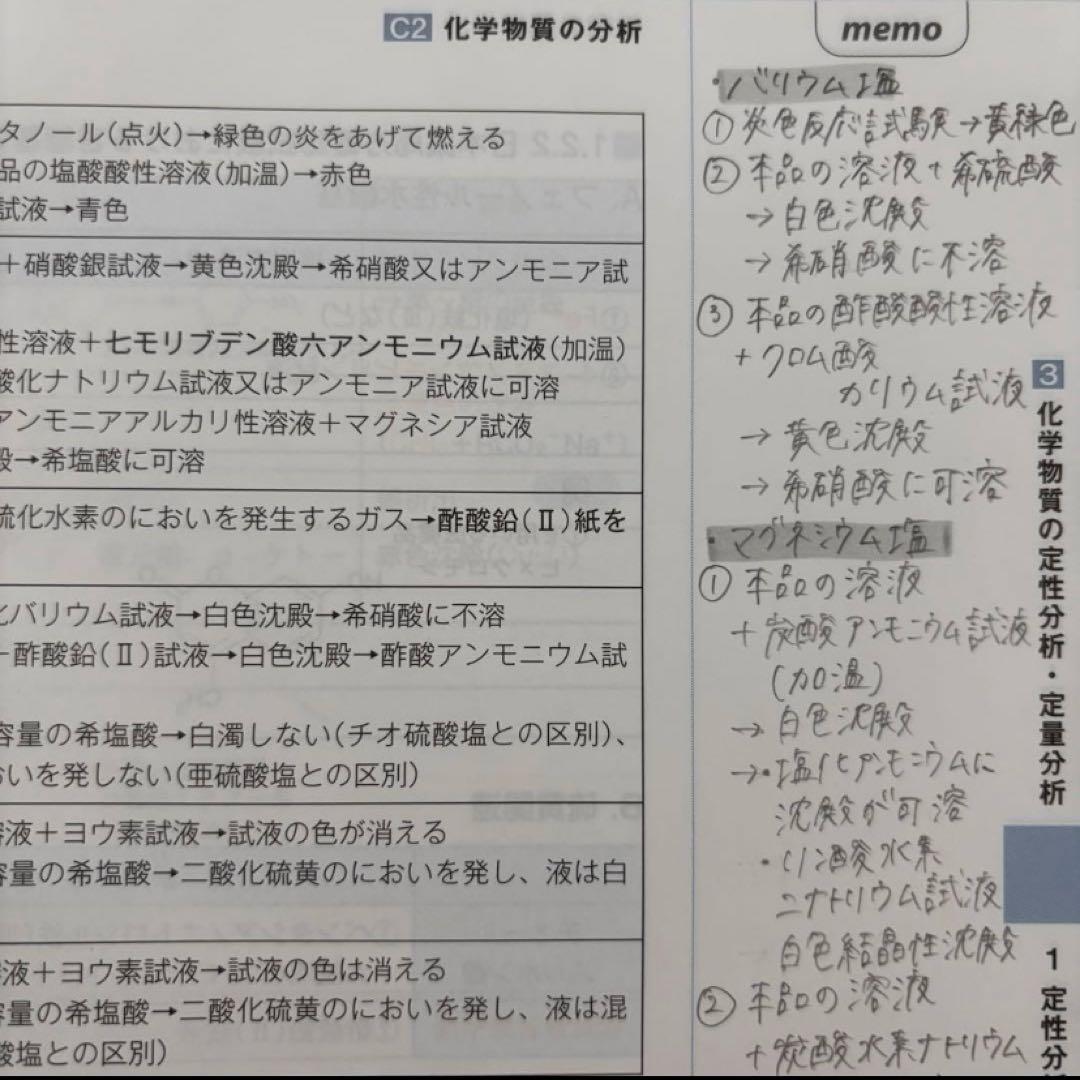 C2 化学物質の分析
タノール(点火)→緑色の炎をあげて燃える
品の塩酸酸性溶液(加温)→赤色
試液→青色
＋硝酸銀試液→黄色沈殿→希硝酸又はアンモニア試
性溶液＋七モリブデン酸六アンモニウム試液(加温)
酸化ナトリウム試液又はアンモニア試液に可溶
アンモニアアルカリ性溶液＋マグネシア試液
殿→希塩酸に可溶
硫化水素のにおいを発生するガス→酢酸鉛(Ⅱ)紙を
バリウム試液→白色沈殿→希硝酸に不溶
酢酸鉛(Ⅱ)試液→白色沈殿→酢酸アンモニウム試
容量の希塩酸→白濁しない(チオ硫酸塩との区別)、
おいを発しない(亜硫酸塩との区別)
溶液＋ヨウ素試液→試液の色が消える
容量の希塩酸→二酸化硫黄のにおいを発し、液は白
溶液＋ヨウ素試液→試液の色は消える
容量の希塩酸→二酸化硫黄のにおいを発し、液は混
酸塩との区別)
memo
・バリウム塩
① 炎色反応試験→黄緑色
② 本品の溶液＋希硫酸
→ 白色沈殿
→ 希硝酸に不溶
③ 本品の酢酸酸性溶液
＋クロム酸
カリウム試液
→ 黄色沈殿
→ 希硝酸に可溶
・マグネシウム塩
① 本品の溶液
＋炭酸アンモニウム試液
(加温)
→ 白色沈殿
→・塩化アンモニウムに
沈殿が可溶
・リン酸水素
二ナトリウム試液
白色結晶性沈殿
② 本品の溶液
＋炭酸水素ナトリウム
3
化学物質の定性分析・定量分析
1 定性分析